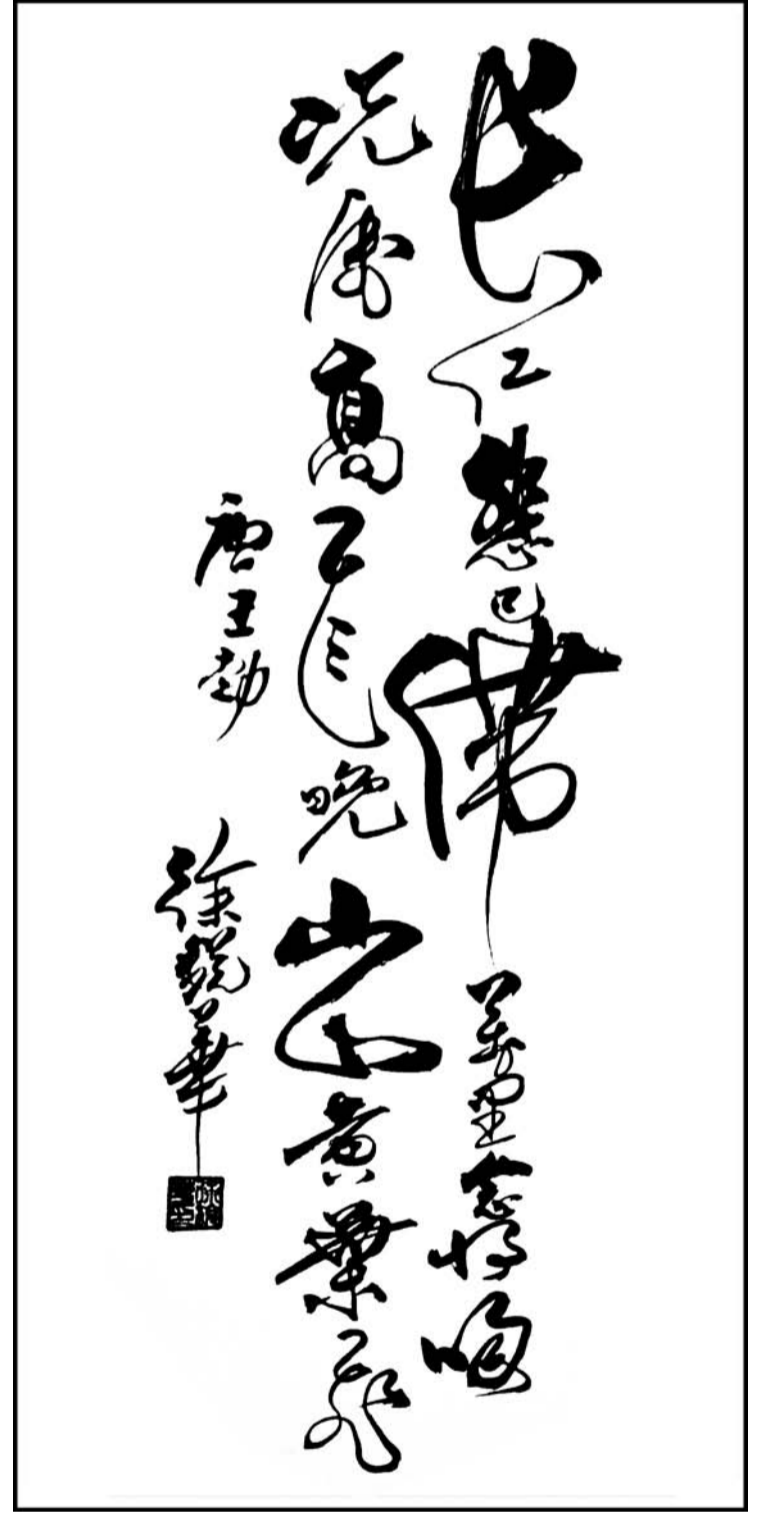 長江悲已滯萬里念將歸
況屬高風晚山山黃葉飛
唐王勃
徐華